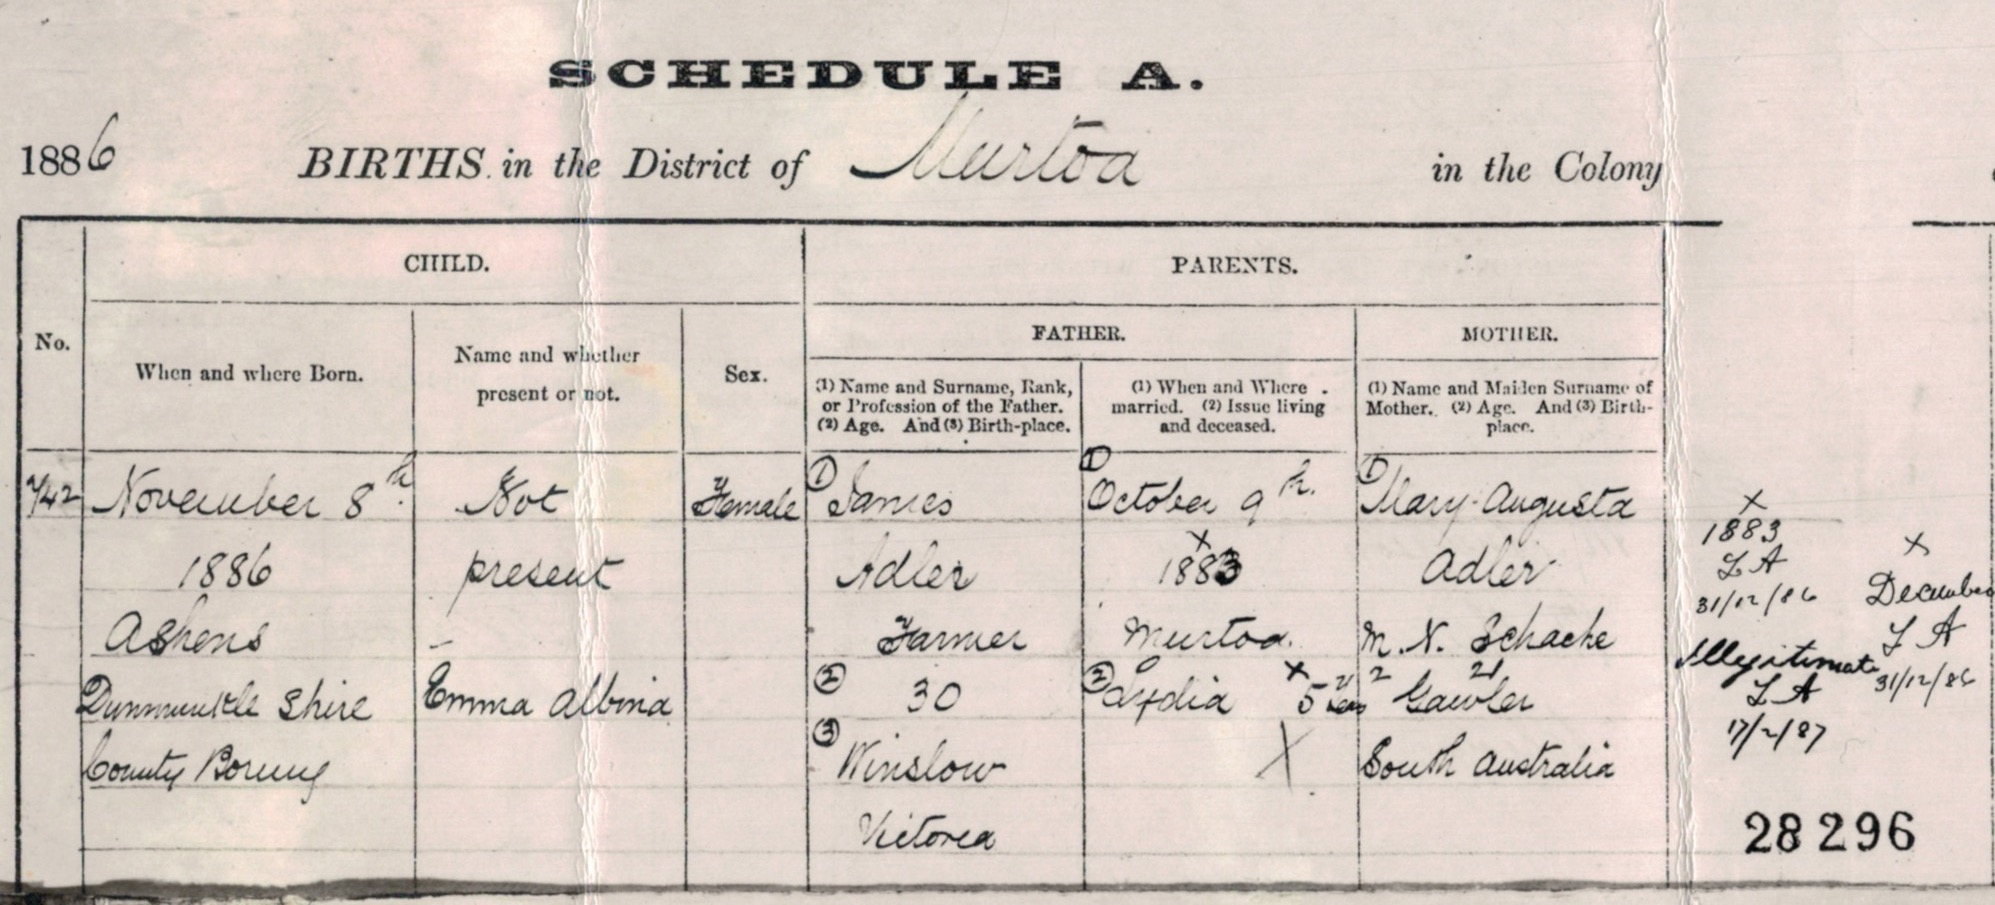 SCHEDULE A.
1886 BIRTHS in the District of Murtoa in the Colony
CHILD.
PARENTS.
No.
When and where Born.
Name and whether
present or not.
Sex.
FATHER.
MOTHER.
(1) Name and Surname, Rank,
or Profession of the Father.
(2) Age. And (3) Birth-place.
(1) When and Where
married. (2) Issue living
and deceased.
(1) Name and Maiden Surname of
Mother. (2) Age. And (3) Birth-
place.
November 8th
1886
Ashens
Dunmunkle Shire
County Borung
Not
present
-
Emma Albina
Female
① James
Adler
Farmer
② 30
③ Winslow
Victoria
① October 9th.
x
1883
Murtoa.
② Lydia x 5
X
① Mary Augusta
Adler
M. N. Schache
2 21
Gawler
South Australia
x
1883
L A
31/12/86
Illegitimate
L A
17/2/87
x
December
L A
31/12/86
28296